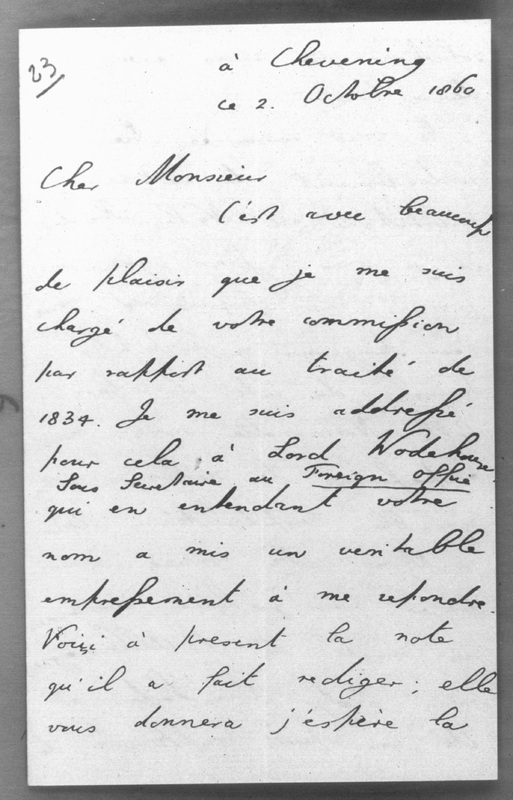 23
à Chevening
ce 2. Octobre 1860
Cher Monsieur
C'est avec beaucoup
de plaisir que je me suis
chargé de votre commission
par rapport au traité de
1834. Je me suis addressé
pour cela à Lord Wodehouse
Sous Secretaire au Foreign office
qui en entendant votre
nom a mis un veritable
empressement à me repondre.
Voiçi à present la note
qu'il a fait rediger; elle
vous donnera j'espère la